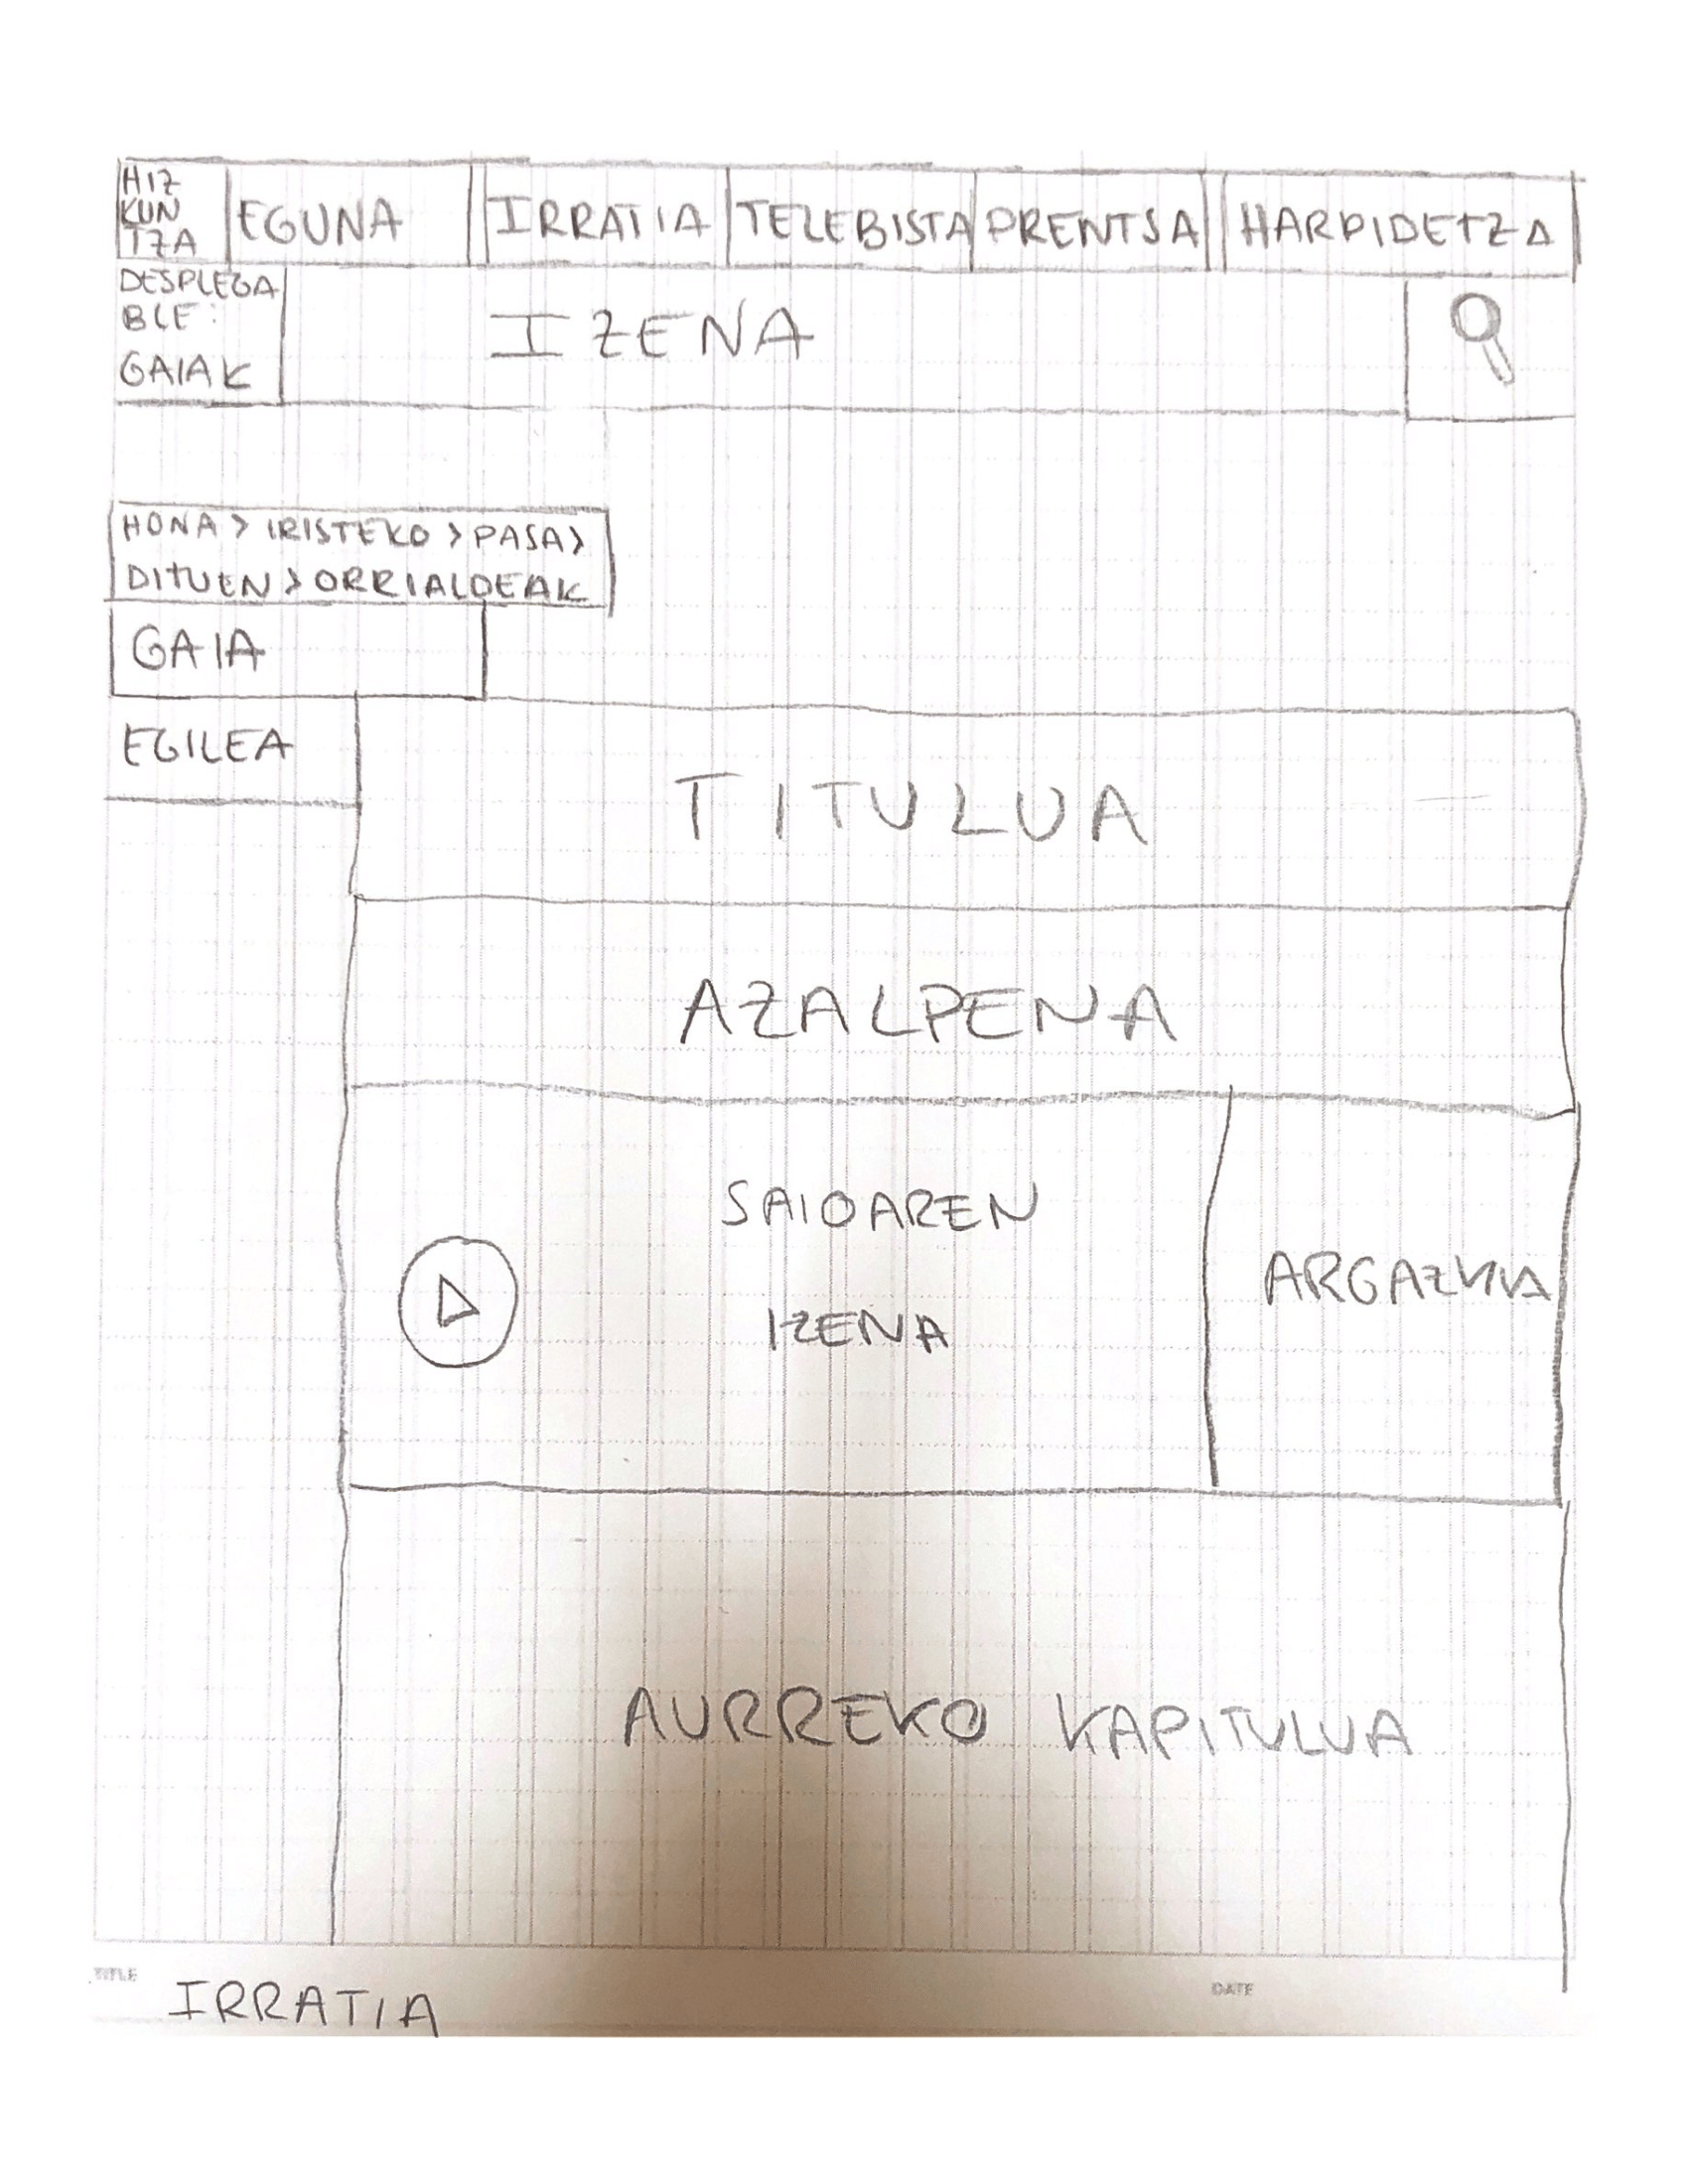 HIZ
KUN
TZA
EGUNA
IRRATIA
TELEBISTA
PRENTSA
HARPIDETZA
DESPLEGA
BLE:
GAIAK
IZENA
HONA > IRISTEKO > PASA >
DITUEN > ORRIALDEAK
GAIA
EGILEA
TITULUA
AZALPENA
SAIOAREN
IZENA
ARGAZKIA
AURREKO KAPITULUA
TITLE
IRRATIA
DATE